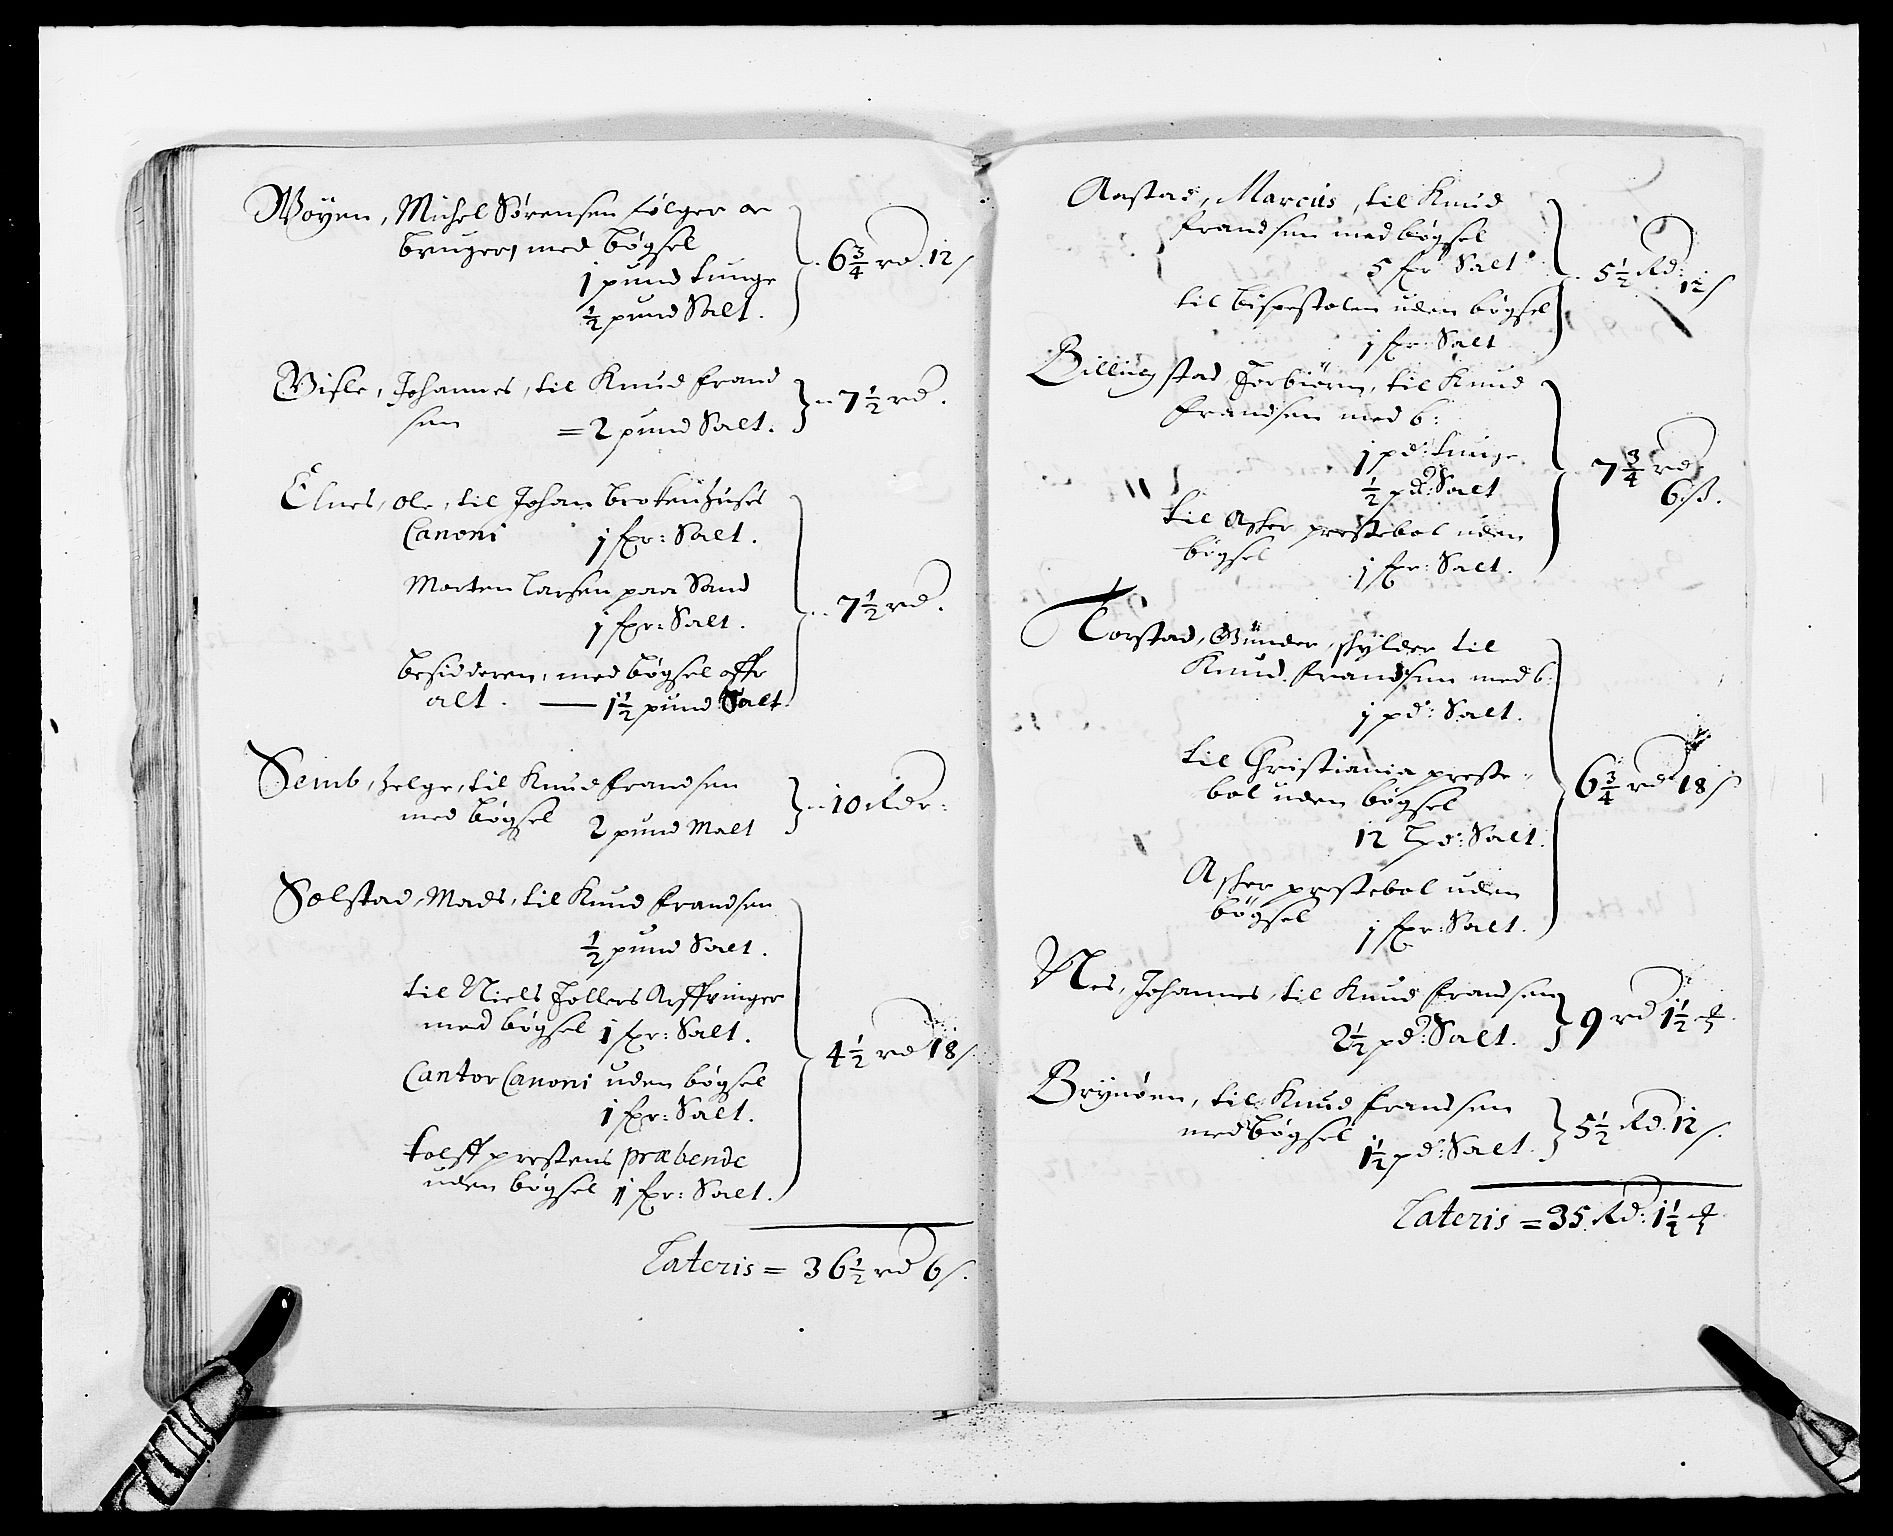 Woÿen, Michel Sørensen følger oc
bruger, med bøgsel
1 pund tunge
½ pund Salt.
6¾ rd. 12 s
Visle, Johannes, til Knud Frand
sen = 2 pund Salt.
7½ rd.
Elnes, Ole, til Johan Brokenhuses
Canoni 1 fxr: Salt.
Morten Larsen paa Sand
1 fxr: Salt.
besidderen, med bøgsel offr
alt. — 1½ pund Salt.
7½ rd.
Semb, Helge, til Knud Frandsen
med bøgsel 2 pund Malt
10 Rdr:
Solstad, Mads, til Knud Frandsen
½ pund Salt.
til Niels Tollers Arffvinger
med bøgsel 1 fxr: Salt.
Cantor Canoni uden bøgsel
1 fxr: Salt.
tolff prestens præbende
uden bøgsel 1 fxr: Salt.
4½ rd 18 s.
Lateris = 36½ rd 6 s.
Aastad, Marcus, til Knud
Frandsen med bøgsel
5 fxr Salt
til bispestolen uden bøgsel
1 fxr: Salt
5½ Rd: 12 s
Billingstad Torbiørn, til Knud
Frandsen med b:
1 pd: tunge
½ pd: Salt
til Asker prestebol uden
bøgsel 1 fxr: Salt.
7¾ rd 6 ß.
Torstad, Gunder, skylder til
Knud Frandsen med b:
1 pd: Salt.
til Christiania preste-
bol uden bøgsel
12 Lpd: Salt.
Asker prestebol uden
bøgsel 1 fxr: Salt.
6¾ rd 18 s
Nes, Johannes, til Knud Frandsen
2½ pd: Salt.
9 rd 1½
Brynøen, til Knud Frandsen
med bøgsel 1½ pd: Salt.
5½ Rd. 12 s.
Lateris = 35 Rd: 1½